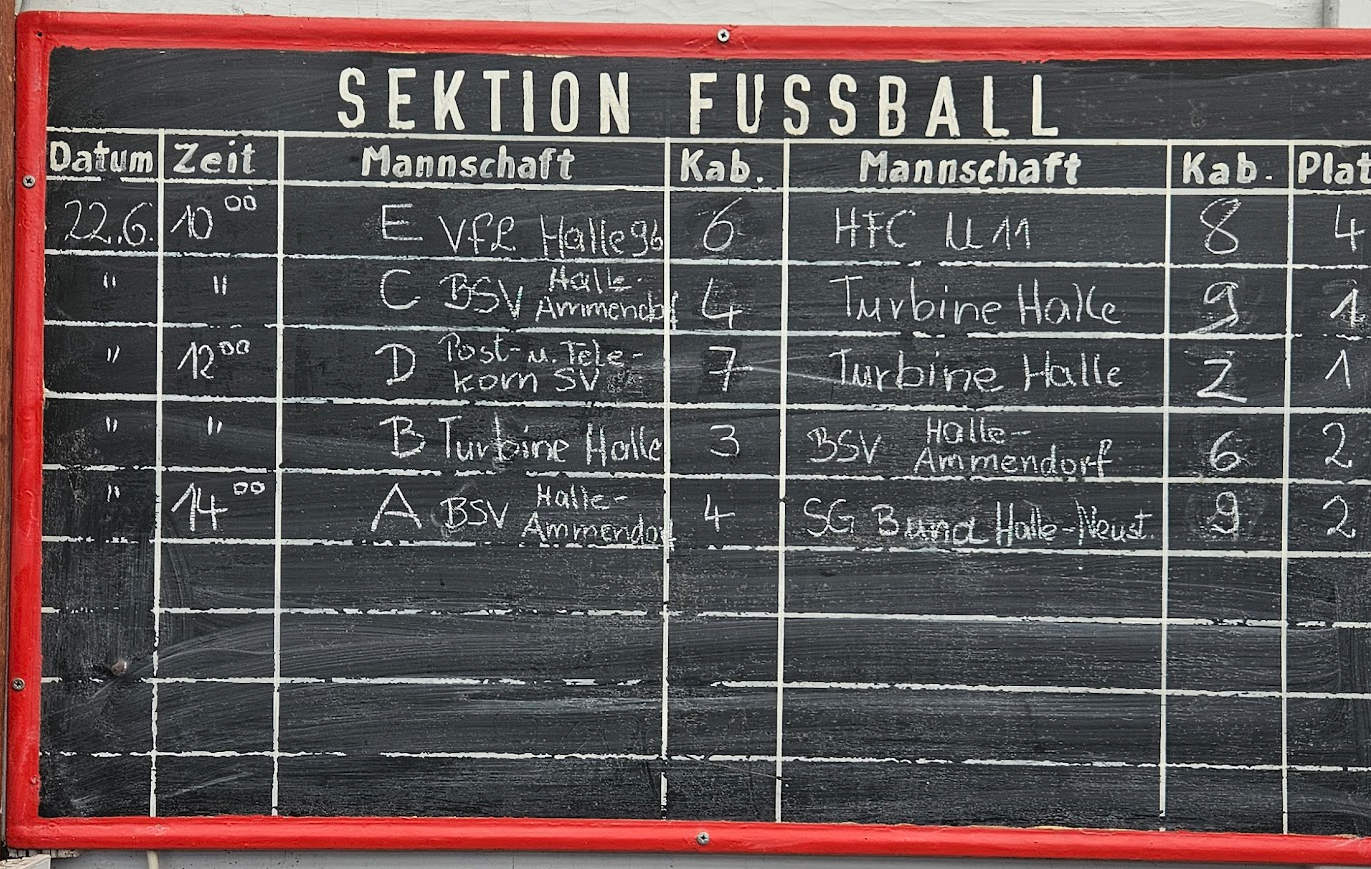 SEKTION FUSSBALL
Datum Zeit Mannschaft Kab. Mannschaft Kab. Plat
22.6. 10 00 E VfL Halle 96 6 HFC U11 8 4
" " C BSV Halle-Ammendorf 4 Turbine Halle 9 1
" 12 00 D Post- u. Tele-kom SV 7 Turbine Halle 2 1
" " B Turbine Halle 3 BSV Halle-Ammendorf 6 2
" 14 00 A BSV Halle-Ammendorf 4 SG Buna Halle-Neust. 9 2